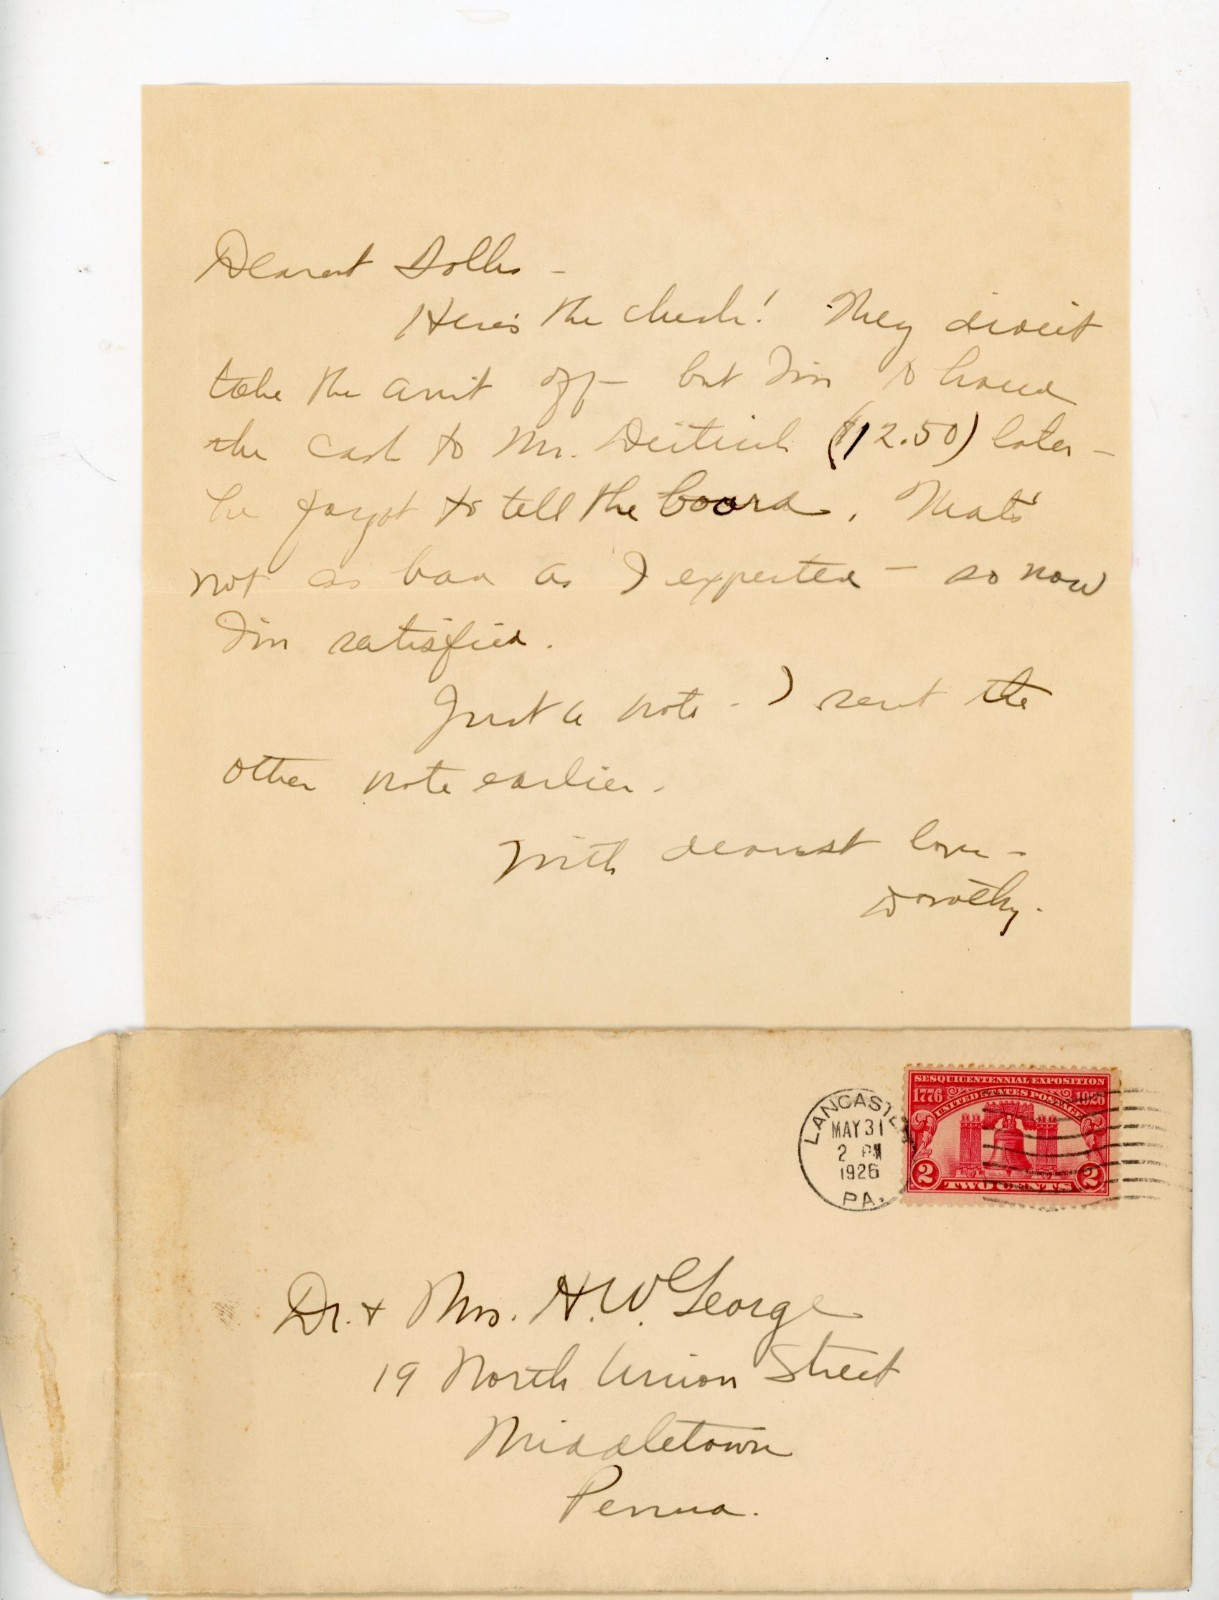 Dearest Folks –
Here's the check! They didn't
take the amt off – but I'm to hand
the cash to Mr. Deitrich ($12.50) later –
he forgot to tell the board. That's
not as bad as I expected – so now
I'm satisfied.
Just a note – I sent the
other note earlier.
With dearest love –
Dorothy.
SESQUICENTENNIAL EXPOSITION
1776 UNITED STATES POSTAGE 1926
2 TWO CENTS 2
LANCASTER
MAY 31
2 PM
1926
PA.
Dr. + Mrs. H. W. George
19 North Union Street
Middletown
Penna.